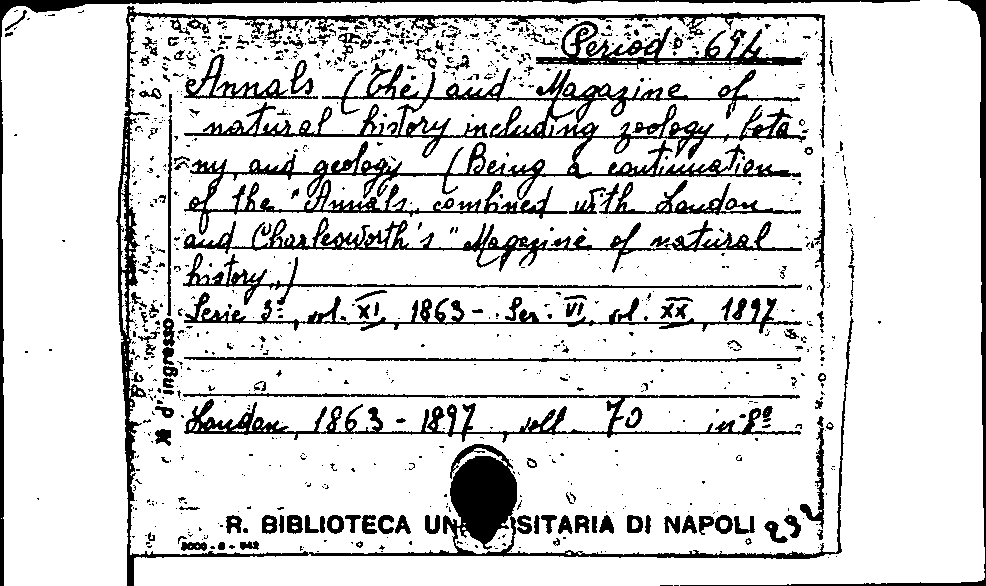 Period. 694
Annals (The) and Magazine of
natural history including zoology, bota-
ny, and geology (Being a continuation
of the "Annals„ combined with London
and Charlesworth's "Magazine of natural
history„)
Serie 3ª, vol. XI, 1863 - Ser. VI, vol. XX, 1897
London, 1863 - 1897, voll. 70 in-8º
N. d'ingresso
R. BIBLIOTECA UNIVERSITARIA DI NAPOLI
232